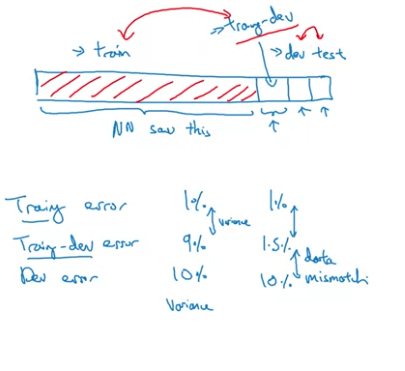 → train
→ traing-dev
→ dev test
NN saw this
Traing error 1% 1%
variance
Traing-dev error 9% 1.5%
data
Dev error 10% 10% mismatch
Variance